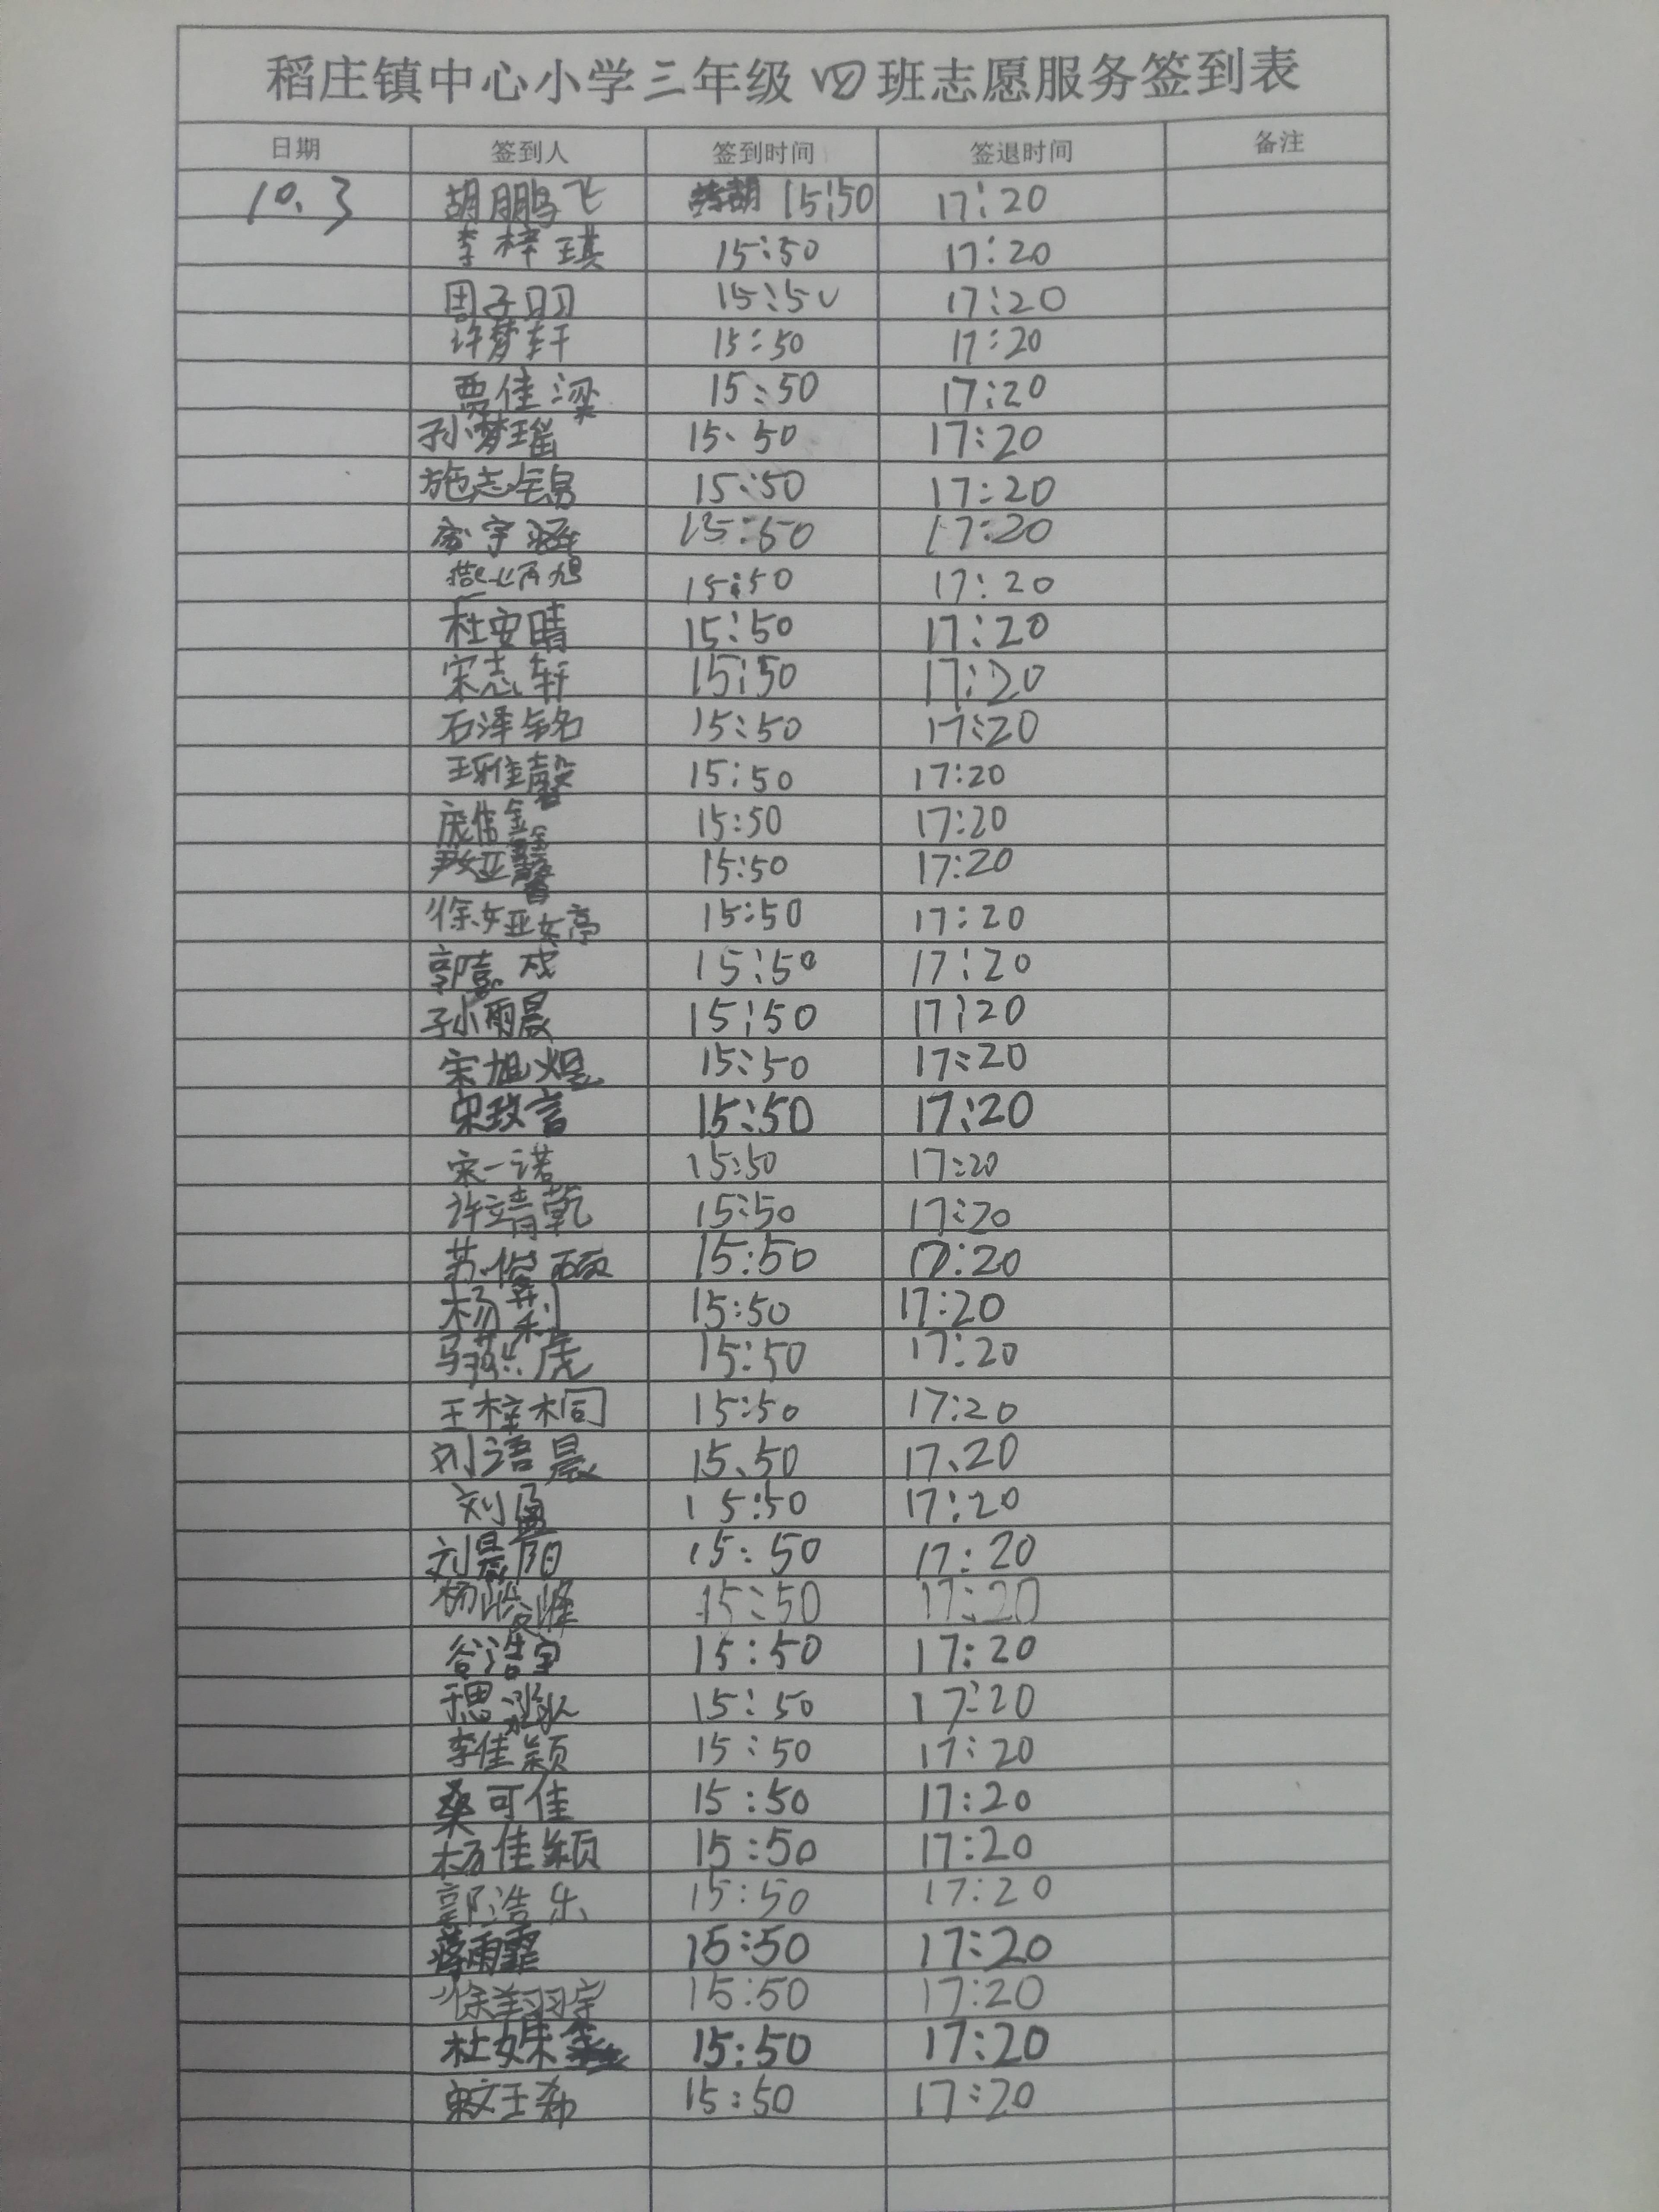 稻庄镇中心小学三年级四班志愿服务签到表
日期 签到人 签到时间 签退时间 备注
10.3 胡鹏飞 15:50 17:20
李梓琪 15:50 17:20
周子羽 15:50 17:20
许梦轩 15:50 17:20
贾佳梁 15:50 17:20
孙梦瑶 15、50 17:20
施志锡 15:50 17:20
宇涵 15:50 17:20
15:50 17:20
杜安晴 15:50 17:20
宋志轩 15:50 17:20
石泽铭 15:50 17:20
王雅馨 15:50 17:20
庞信鑫 15:50 17:20
尹娅馨 15:50 17:20
徐娅婷 15:50 17:20
郭嘉成 15:50 17:20
孙雨晨 15:50 17:20
宋旭煜 15:50 17:20
宋玫言 15:50 17:20
宋一诺 15:50 17:20
许靖乾 15:50 17:20
苏俊硕 15:50 17:20
杨荆 15:50 17:20
马 虎 15:50 17:20
王梓桐 15:50 17:20
刘语晨 15、50 17、20
刘盈 15:50 17:20
刘晨阳 15:50 17:20
杨峻峰 15:50 17:20
谷浩宇 15:50 17:20
于思淼 15:50 17:20
李佳颖 15:50 17:20
桑可佳 15:50 17:20
杨佳颖 15:50 17:20
郭浩乐 15:50 17:20
蒋雨霏 15:50 17:20
徐翔宇 15:50 17:20
杜姝 15:50 17:20
15:50 17:20